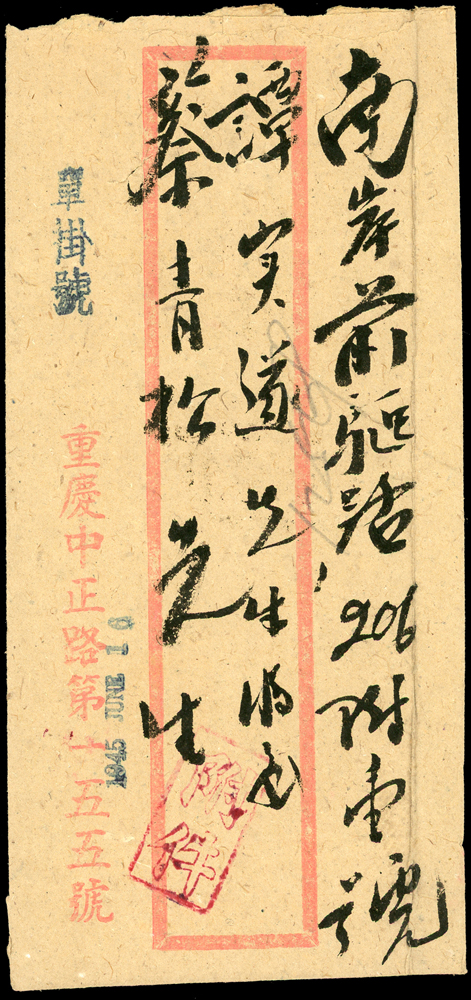 南岸前驅路206附壹號
譚实道先生收
蔡青松先生
附件
單掛號
1945 JUNE
重慶中正路第一五五號